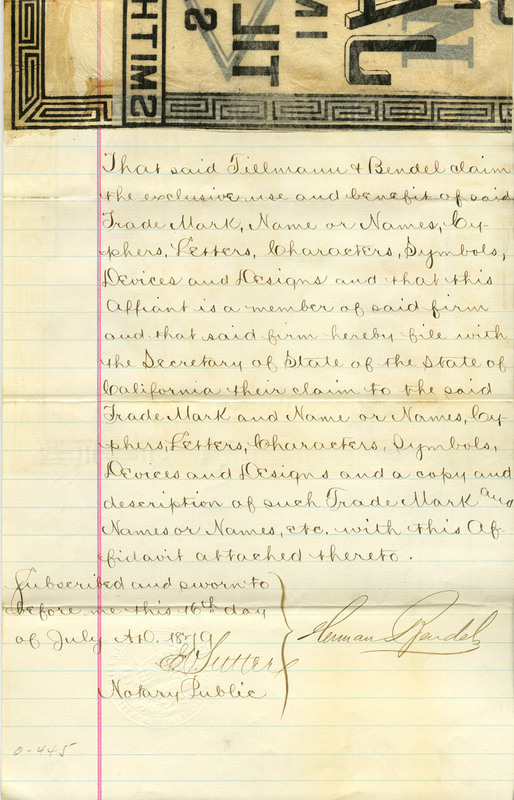 SMITH
That said Tillmann & Bendel claim
the exclusive use and benefit of said
Trade Mark, Name or Names, Cy-
phers, Letters, Characters, Symbols,
Devices and Designs and that this
Affiant is a member of said firm
and that said firm hereby file with
the Secretary of State of the State of
California their claim to the said
Trade Mark and Name or Names, Cy-
phers, Letters, Characters, Symbols,
Devices and Designs and a copy and
description of such Trade Mark and
Names or Names, etc. with this Af-
fidavit attached thereto.
Subscribed and sworn to
before me this 16th day
of July A.D. 1879
Herman Bendel
Sutter
Notary Public
0-445